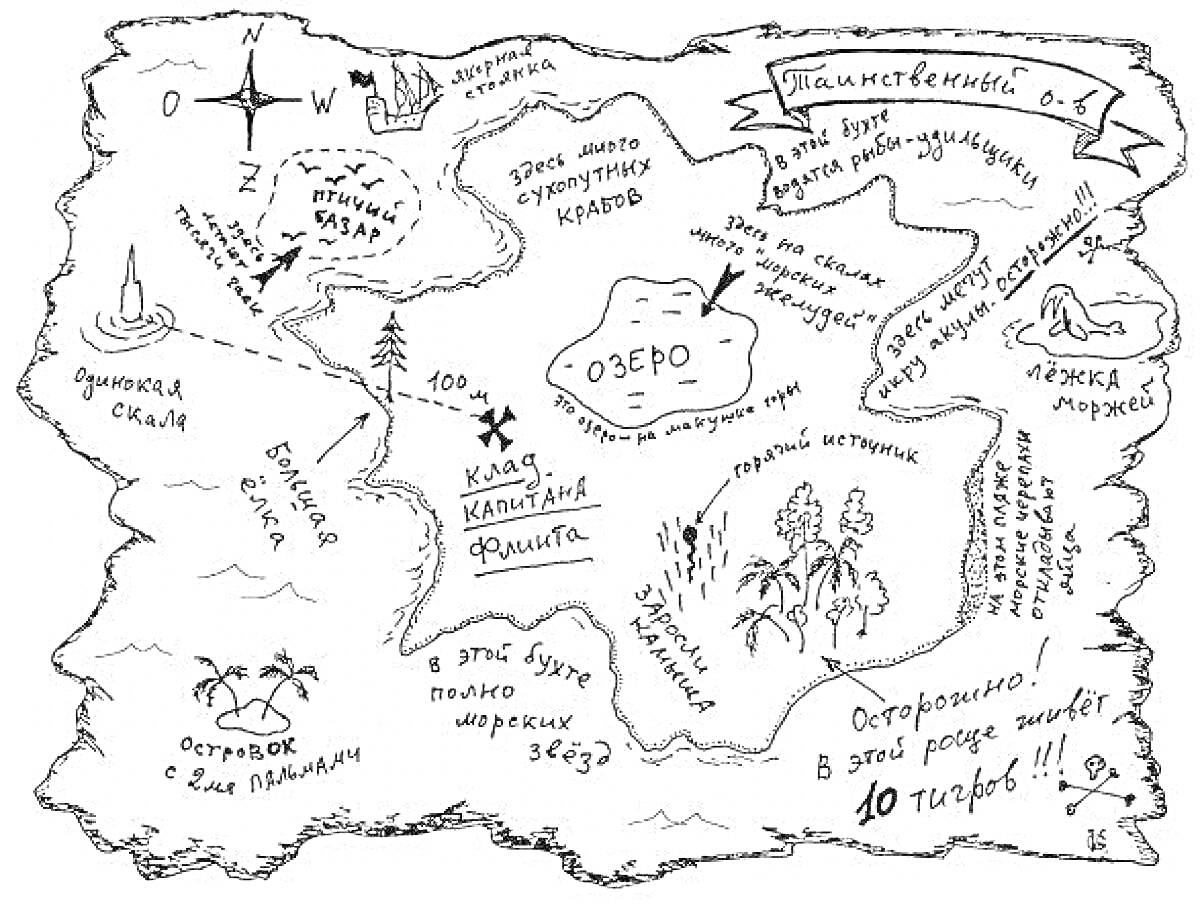 N
O W
Z
якорная
стоянка
Таинственный о-в
в этой бухте
водятся рыбы-удильщики
здесь много
сухопутных
крабов
птичий
базар
здесь
летают
тысячи чаек
здесь на скалах
много "морских
желудей"
здесь мечут
икру акулы. осторожно!!!
ОЗЕРО
это озеро - на макушке горы
лёжка
моржей
Одинокая
скала
100 м
Клад
капитана
Флинта
Большая
ёлка
горячий источник
заросли
камыша
на этом пляже
морские черепахи
откладывают
яйца
в этой бухте
полно
морских
звёзд
островок
с 2мя пальмами
Осторожно!
В этой роще живёт
10 тигров!!!